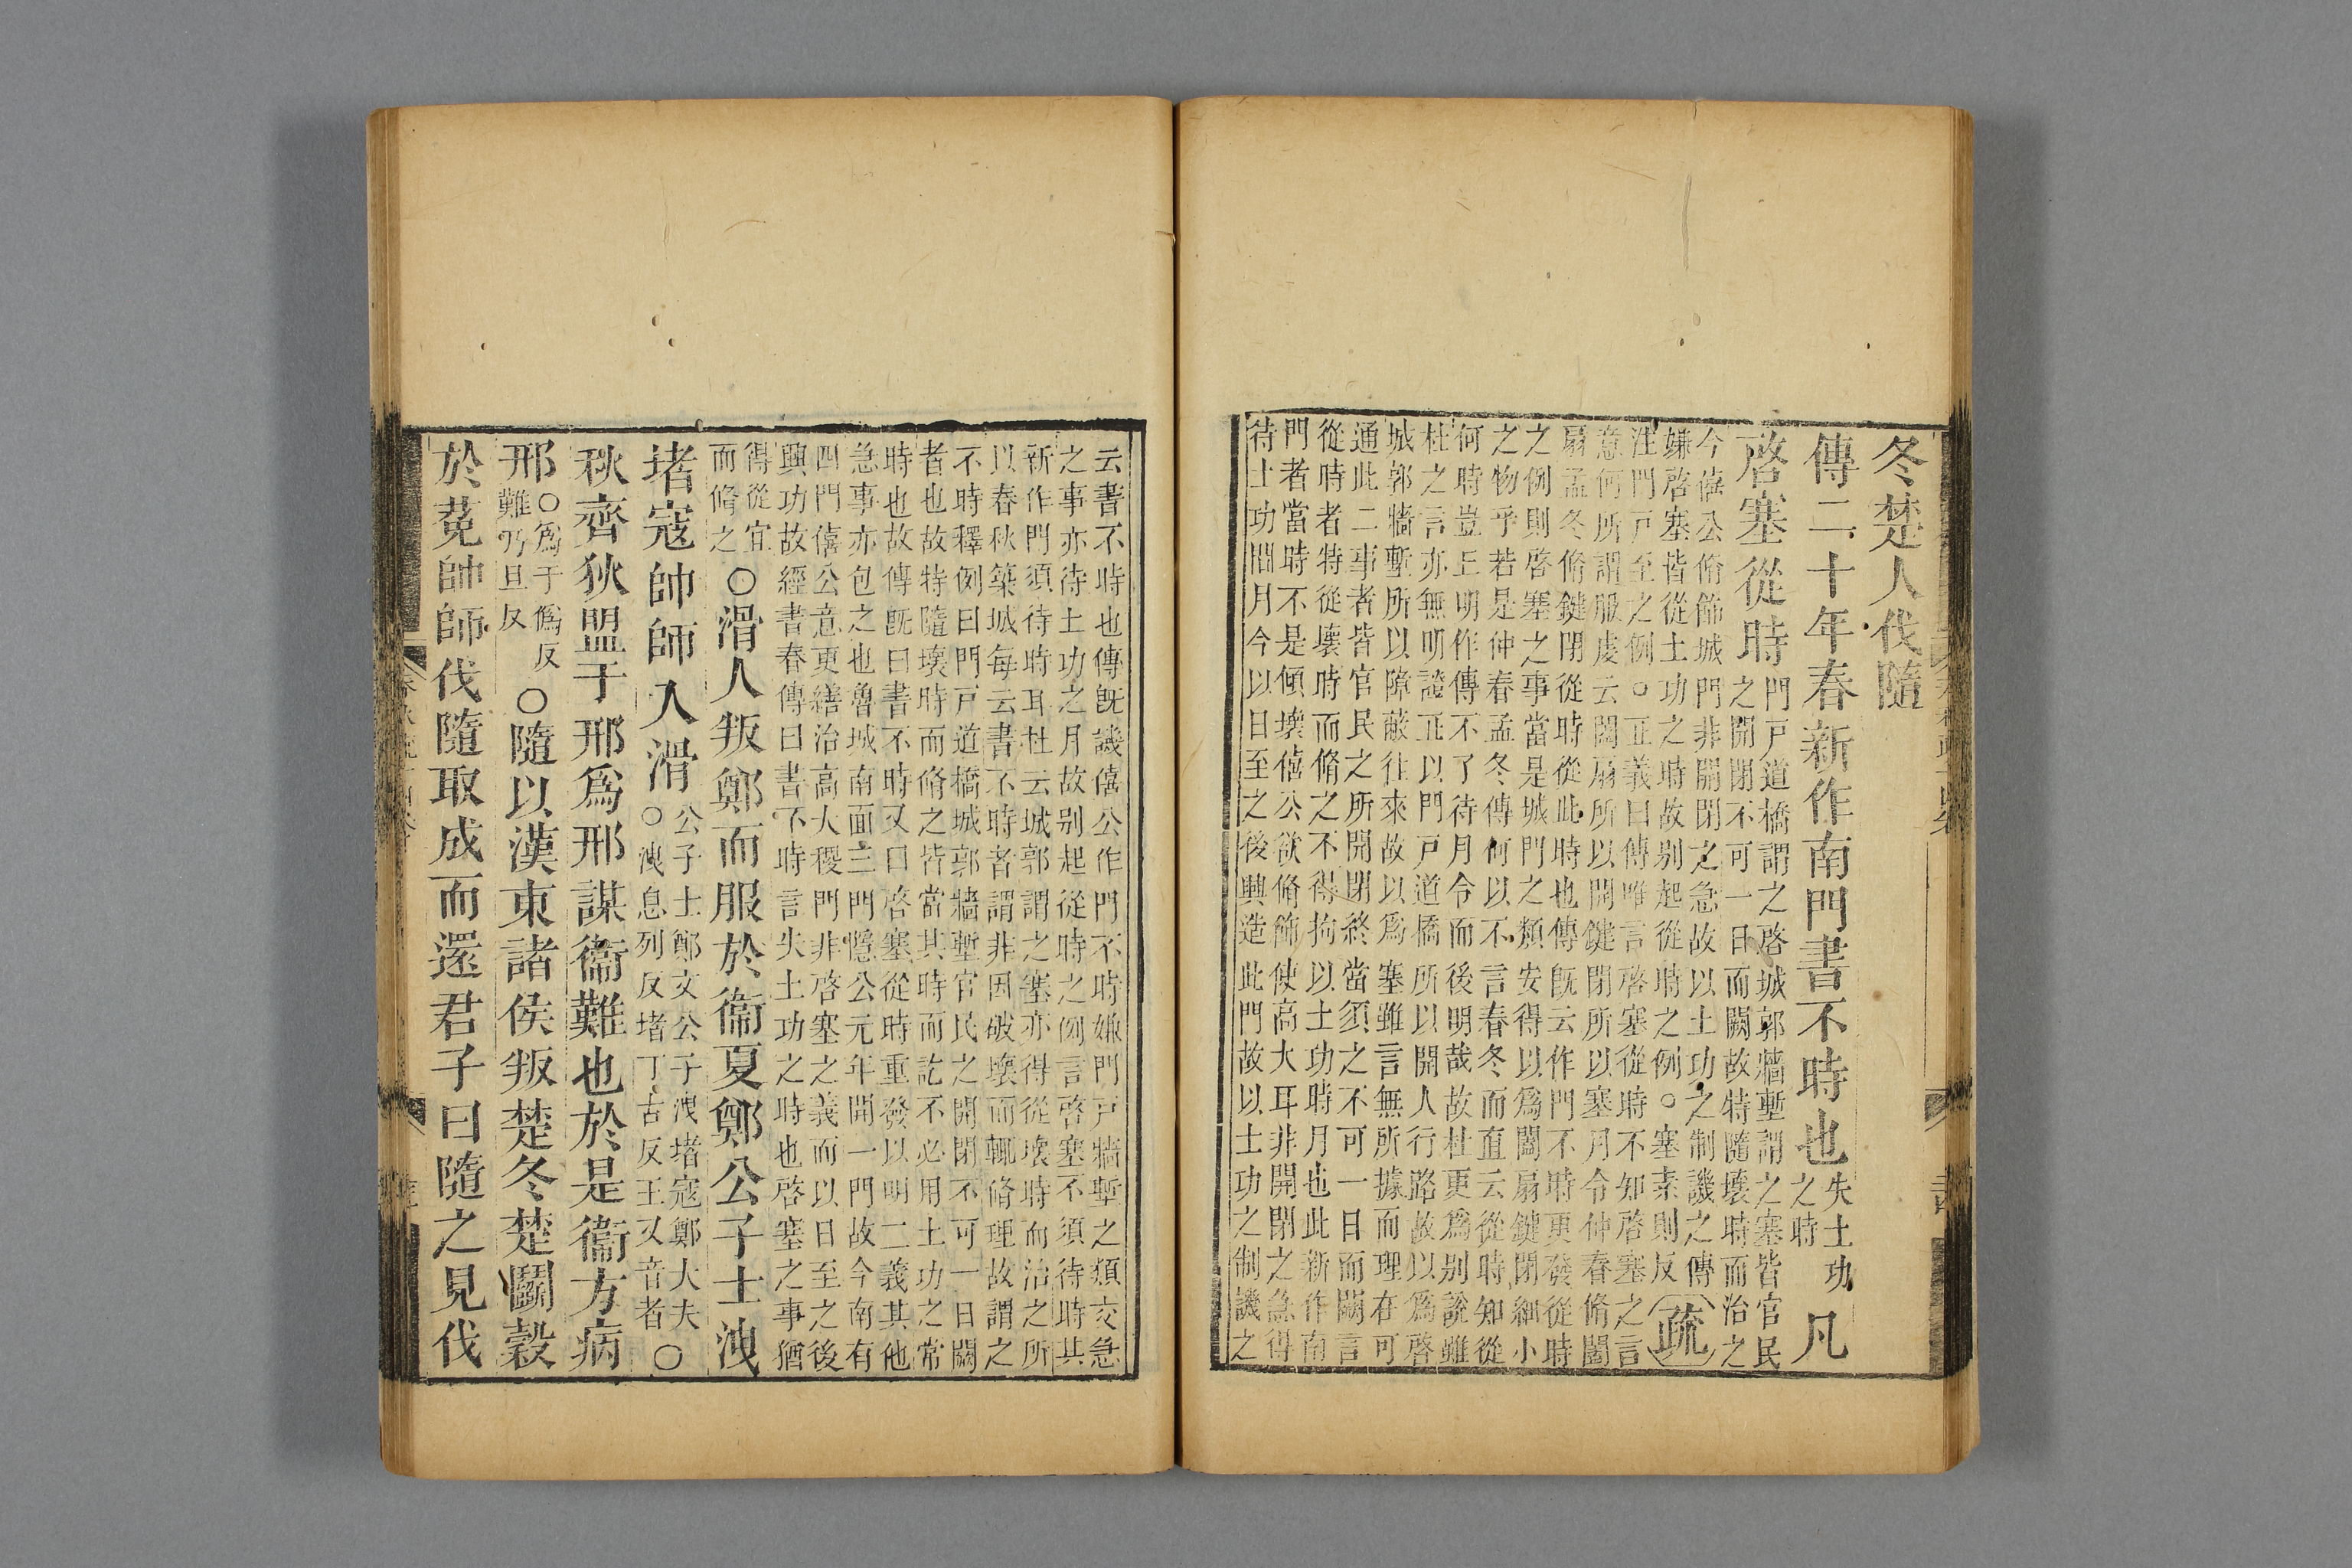 冬楚人伐隨
傳二十年春新作南門書不時也失土功之時凡
啓塞從時門戸道橋謂之啓城郭牆塹謂之塞皆官民之開閉不可一日而闕故特隨壞時而治之
今僖公脩飾城門非開閉之急故以土功之制譏之傳
嫌啓塞皆從土功之時故别起從時之例○塞素則反疏
注門戸至之例○正義曰傳唯言啓塞從時不知啓塞之言
意何所謂服虔云闔扇所以開鍵閉所以塞月令仲春脩闔
扇孟冬脩鍵閉從時從此時也傳既云作門不時更發從時
之例則啓塞之事當是城門之類安得以爲闔扇鍵閉細小
之物乎若是仲春孟冬傳何以不言春冬而直云從時知從
何時豈丘明作傳不了待月令而後明哉故杜更爲别說雖
杜之言亦無明證正以門戸道橋所以開人行路故以爲啓
城郭牆塹所以障蔽往來故以爲塞雖言無所據而理在可
通此二事者皆官民之所開閉終當須之不可一日而闕言
從時者特從壞時而脩之不得拘以土功時月也此新作南
門者當時不是傾壞僖公欲脩飾使高大耳非開閉之急得
待土功間月今以日至之後興造此門故以土功之制譏之
云書不時也傳既譏僖公作門不時嫌門戸牆塹之類交急
之事亦待土功之月故别起從時之例言啓塞不須待時其
新作門須待時耳杜云城郭謂之塞亦得從壞時而治之所
以春秋築城每云書不時者謂非因破壞而輒脩理故謂之
不時釋例曰門戸道橋城郭牆塹官民之開閉不可一日闕
者也故特隨壞時而脩之皆當其時而訖不必用土功之常
時也故傳既曰書不時又曰啓塞從時重發以明二義其他
急事亦包之也魯城南面三門隱公元年開一門故今南有
四門僖公意更繕治高大稷門非啓塞之義而以日至之後
興功故經書春傳曰書不時言失土功之時也啓塞之事猶
得從宜而脩之○滑人叛鄭而服於衞夏鄭公子士洩
堵寇帥師入滑公子士鄭文公子洩堵寇鄭大夫○洩息列反堵丁古反王又音者○
秋齊狄盟于邢爲邢謀衞難也於是衞方病
邢○爲于僞反難乃旦反○隨以漢東諸侯叛楚冬楚鬬穀
於菟帥師伐隨取成而還君子曰隨之見伐